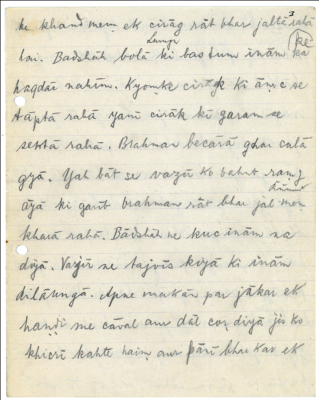 3
ke khand mem ek cirāg rāt bhar jaltā rahā
hai. Bādshāh bolā ki bas tum inām kā
ke
haqdār nahīm. Kyomke cirāg ki āmc se
tāptā rahā yanī cirāk kī garam se
sektā rahā. Brahman becārā ghar calā
gyā. Yah bāt se vazīr ko bahut ramj
āyā ki garīb brahman rāt bhar jal mem
kharā rahā. Bādshāh ne kuc inām na
diyā. Vazīr ne tajvīs kiyā ki inām
dilāungā. Apne makān par jākar ek
handi me cāval aur dāl cor diyā jis ko
khicrī kahte haim aur pānī bhar kar ek